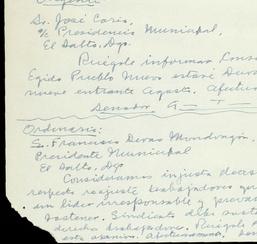 Urgente
Sr. José Caris,
%c Presidencia Municipal,
El Salto, Dgo.
Ruégole informar
Egido Pueblo Nuevo estaré
nueve entrante Agosto.
Senador. G — T —
Ordinario:
Sr. Francisco Deras Mondragón
Presidente Municipal
El Salto, Dgo.
Consideramos injusta
respecto reajuste trabajadores
un lider irresponsable y
sostener. Sindicato debe
derecho trabajadores. Ruégole